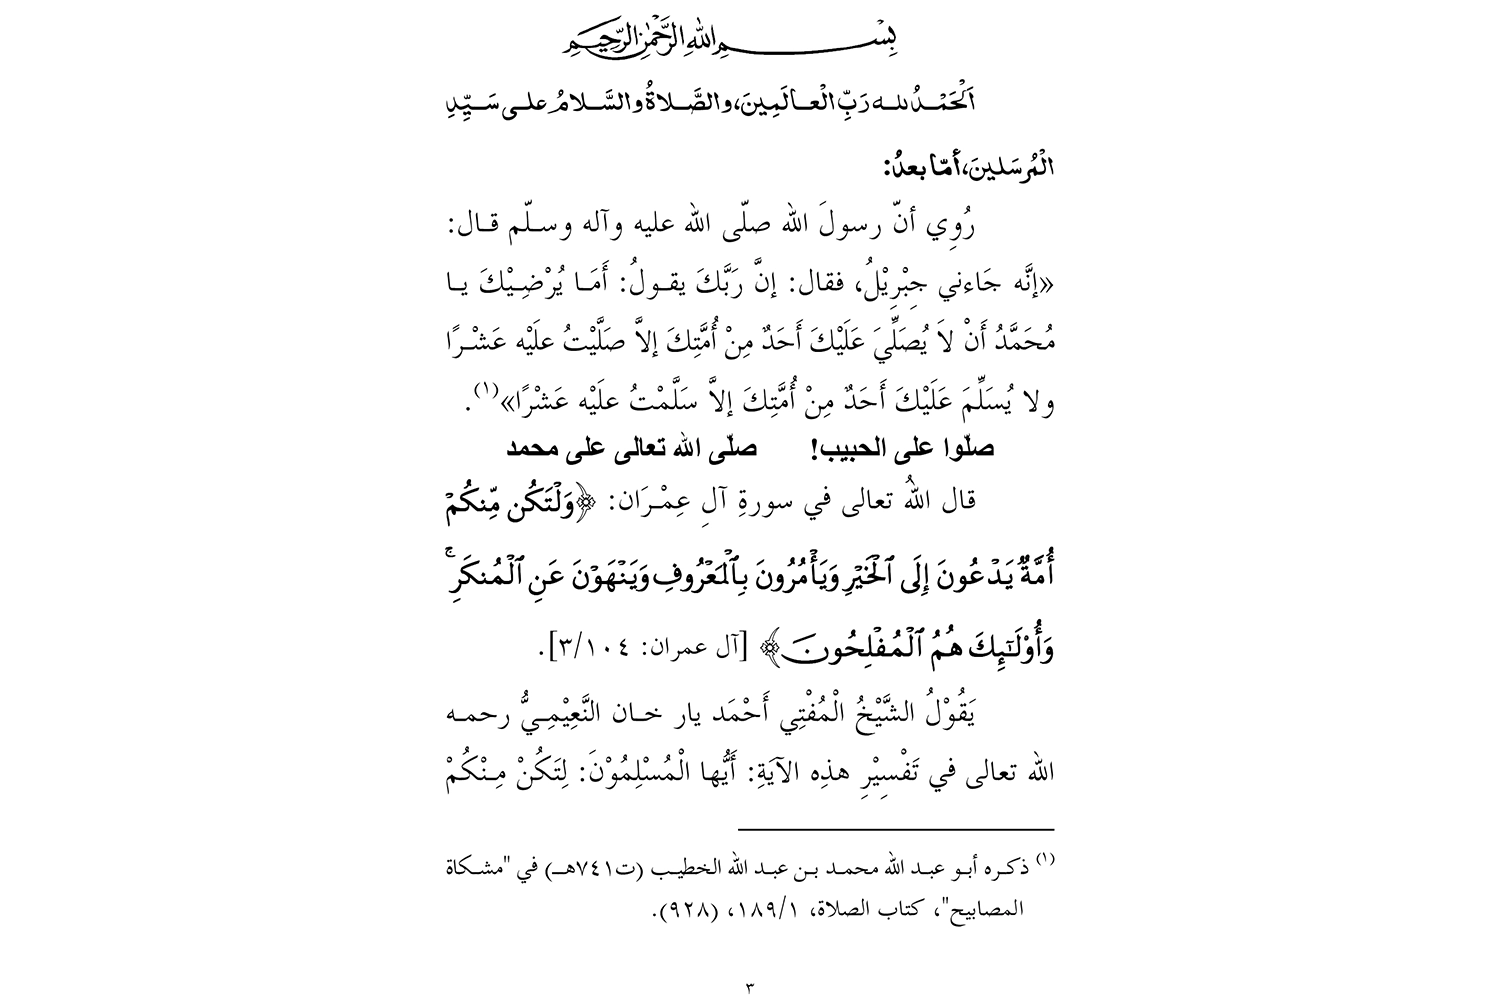 بِسْمِ اللهِ الرَّحْمٰنِ الرَّحِيْمِ
اَلْحَمْدُ لله رَبِّ الْعالَمِينَ، والصَّلاةُ والسَّلامُ على سَيِّدِ
الْمُرسَلينَ، أمّا بعدُ:
رُوِي أنّ رسولَ الله صلّى الله عليه وآله وسلّم قال:
«إنَّه جَاءني جِبْرِيْلُ، فقال: إنَّ رَبَّكَ يقولُ: أَمَا يُرْضِيْكَ يا
مُحَمَّدُ أَنْ لاَ يُصَلِّيَ عَلَيْكَ أَحَدٌ مِنْ أُمَّتِكَ إلاَّ صَلَّيْتُ علَيْه عَشْرًا
ولا يُسَلِّمَ عَلَيْكَ أَحَدٌ مِنْ أُمَّتِكَ إلاَّ سَلَّمْتُ علَيْه عَشْرًا»(١).
صلّوا على الحبيب! صلّى الله تعالى على محمد
قال اللهُ تعالى في سورةِ آلِ عِمْرَان: ﴿وَلْتَكُن مِّنكُمْ
أُمَّةٌ يَدْعُونَ إِلَى ٱلْخَيْرِ وَيَأْمُرُونَ بِٱلْمَعْرُوفِ وَيَنْهَوْنَ عَنِ ٱلْمُنكَرِ ۚ
وَأُوْلَٰٓئِكَ هُمُ ٱلْمُفْلِحُونَ﴾ [آل عمران: ٣/١٠٤].
يَقُوْلُ الشَّيْخُ الْمُفْتِي أَحْمَد يار خان النَّعِيْمِيُّ رحمه
الله تعالى في تَفْسِيْرِ هذِه الآيَةِ: أَيُّها الْمُسْلِمُوْنَ: لِتَكُنْ مِنْكُمْ
(١) ذكره أبو عبد الله محمد بن عبد الله الخطيب (ت٧٤١هـ) في "مشكاة
المصابيح"، كتاب الصلاة، ١٨٩/١، (٩٢٨).
٣